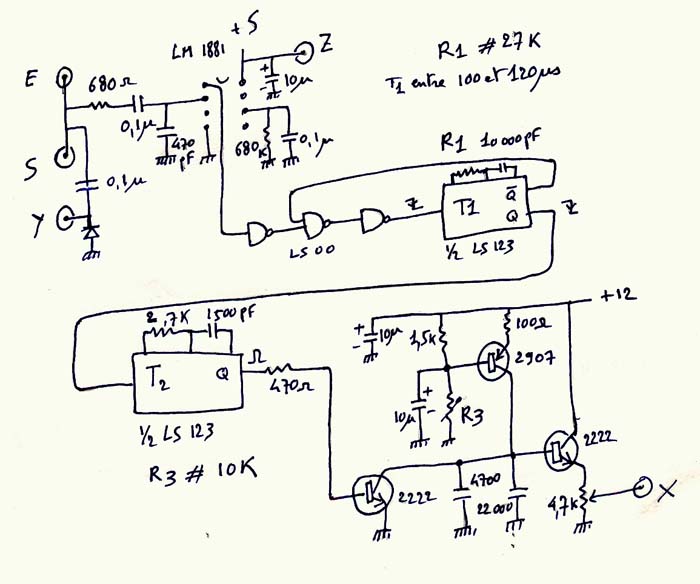 +5
LM 1881
Z
R1 # 27K
T1 entre 100 et 120µs
E
680Ω
+
-
10µ
0,1µ
470 pF
680 K
0,1µ
S
0,1µ
Y
R1 10000pF
T1
Q̅
Q
LS 00
1/2 LS 123
+12
2,7K
1500pF
+
-
10µ
1,5K
100Ω
2907
T2
Q
470Ω
+
10µ
-
R3
1/2 LS 123
R3 # 10K
2222
2222
4700
22000
4,7K
X